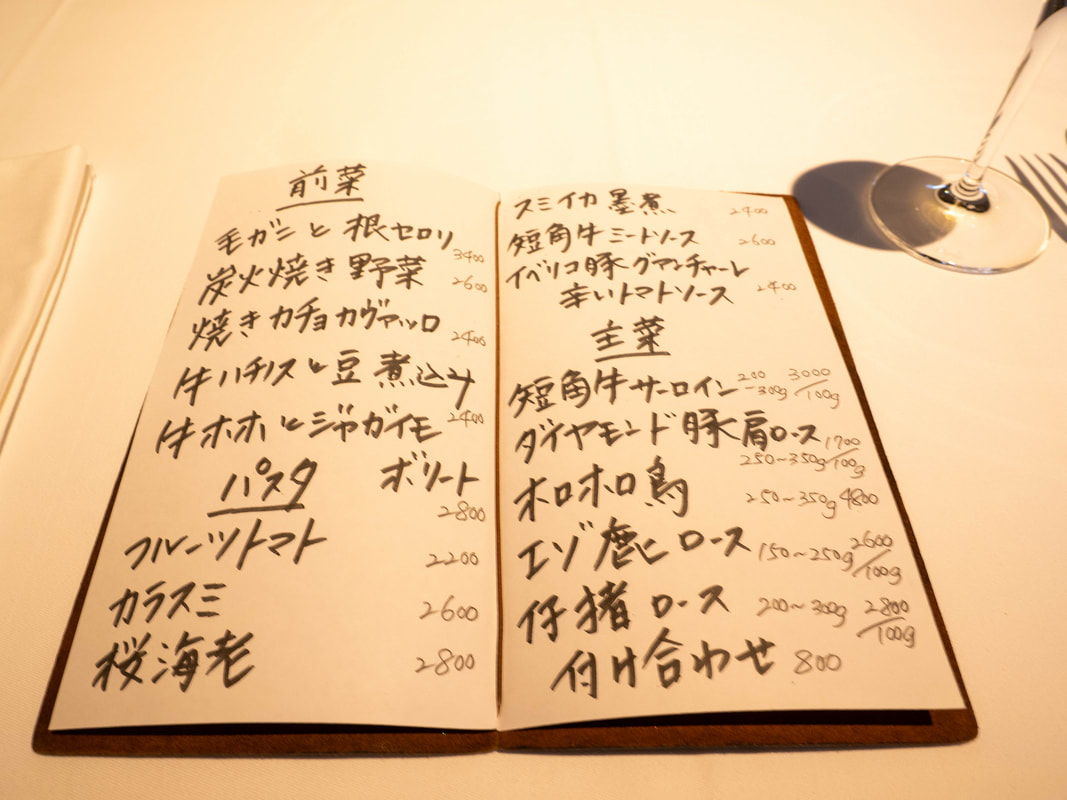 前菜
毛ガニと根セロリ
3400
炭火焼き野菜 2600
焼きカチョカヴァッロ
2400
牛ハチノスと豆煮込み
2400
牛ホホとジャガイモ
ボリート
2800
パスタ
フルーツトマト 2200
カラスミ 2600
桜海老 2800
スミイカ墨煮 2400
短角牛ミートソース 2600
イベリコ豚グアンチャーレ
辛いトマトソース 2400
主菜
短角牛サーロイン 200~300g 3000/100g
ダイヤモンド豚肩ロース 1700/100g
250~350g
ホロホロ鳥 250~350g 4800
エゾ鹿ロース 150~250g 2600/100g
仔猪ロース 200~300g 2800/100g
付け合わせ 800